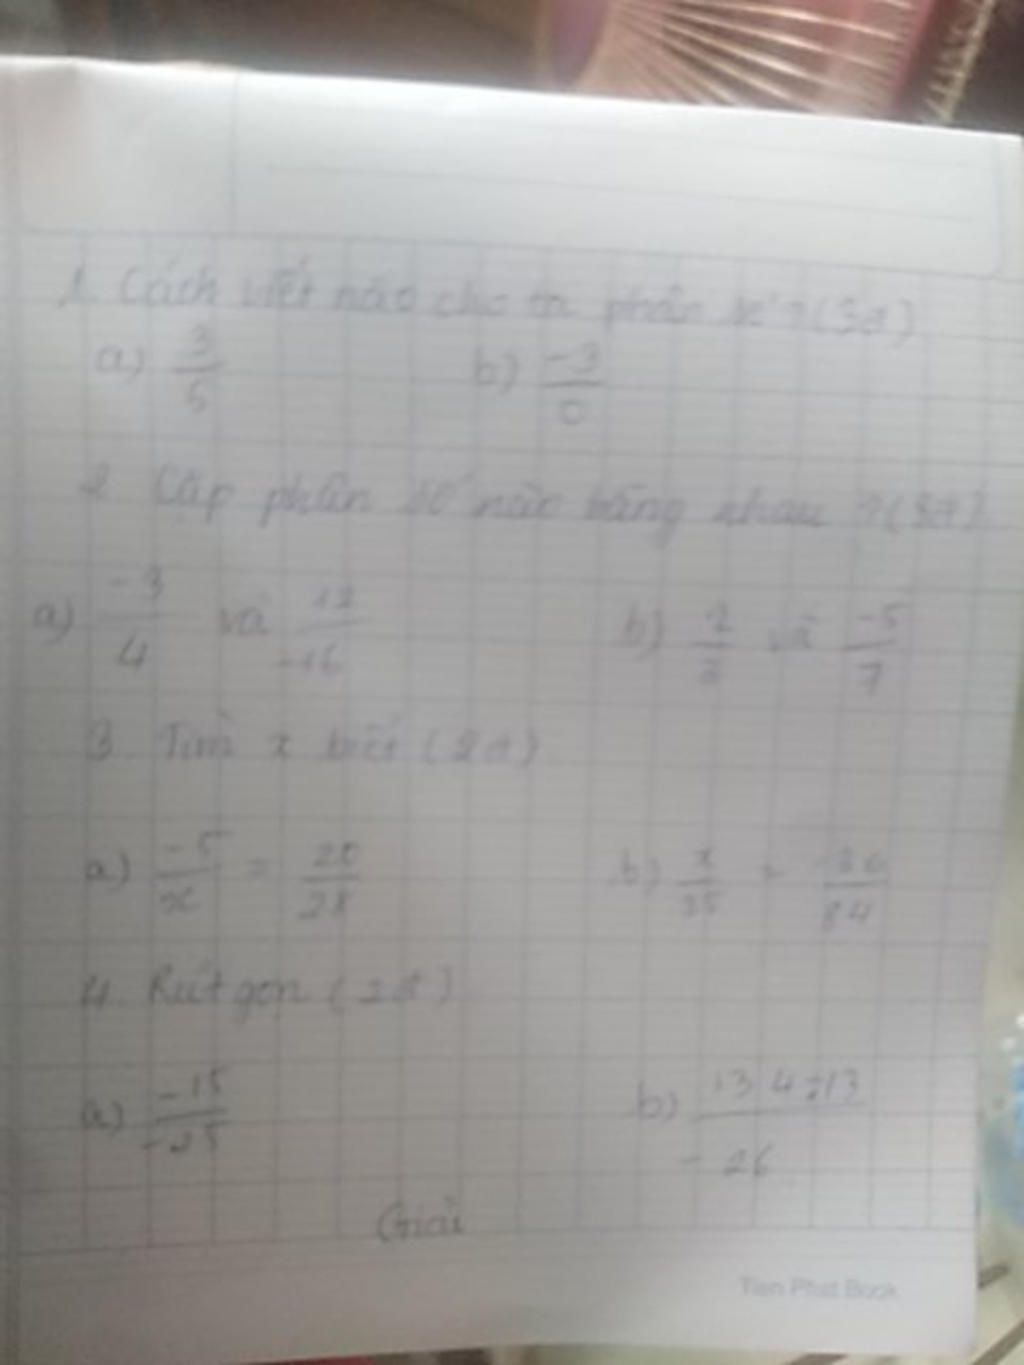 1. Cách viết nào cho ta phân số ? (3đ)
a) 3/5 b) -3/0
2 Cặp phân số nào bằng nhau ? (3đ)
a) -3/4 và 12/-16 b) và -5/7
3. Tìm x biết (2đ)
a) -5/x = 20/28 b) x/35 =
4. Rút gọn (2đ)
a) -15/-25 b) 13 4 13/-26
Giải
Tien Phat Book